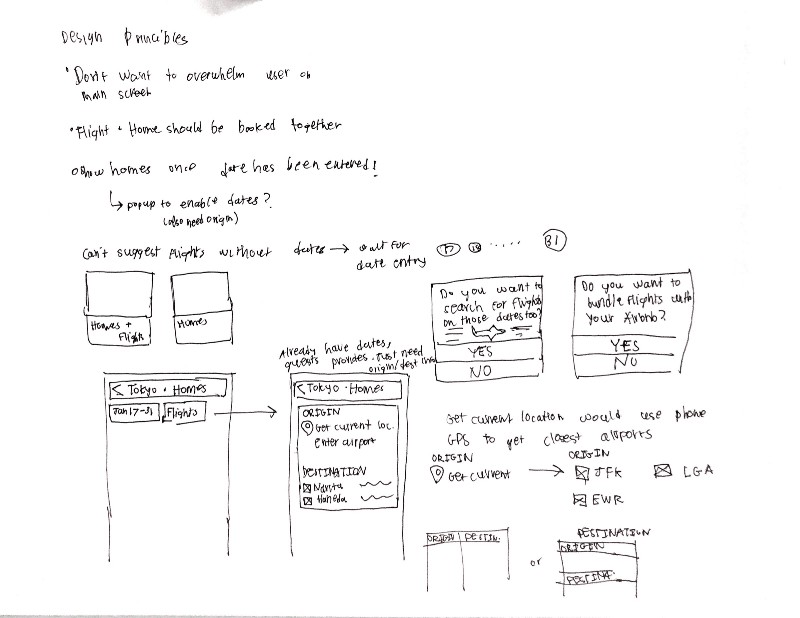 Design Principles
• Don't want to overwhelm user on
main screen
• Flight + Home should be booked together
• Show homes once date has been entered!
↳ popup to enable dates?
(also need origin)
Can't suggest flights without dates → wait for
date entry
17 18 ..... 31
Homes +
Flight
Homes
Do you want to
search for flights
on those dates too?
YES
NO
Do you want to
bundle flights with
your Airbnb?
YES
NO
Already have dates,
guests provides. Just need
origin/dest info
< Tokyo • Homes
Jan 17-31
Flights
< Tokyo • Homes
ORIGIN
Get current loc.
Enter airport
DESTINATION
Narita
Haneda
Get current location would use phone
GPS to get closest airports
ORIGIN
Get current
ORIGIN
JFK
LGA
EWR
ORIGIN DESTIN.
or
DESTINATION
ORIGIN
DESTINA.